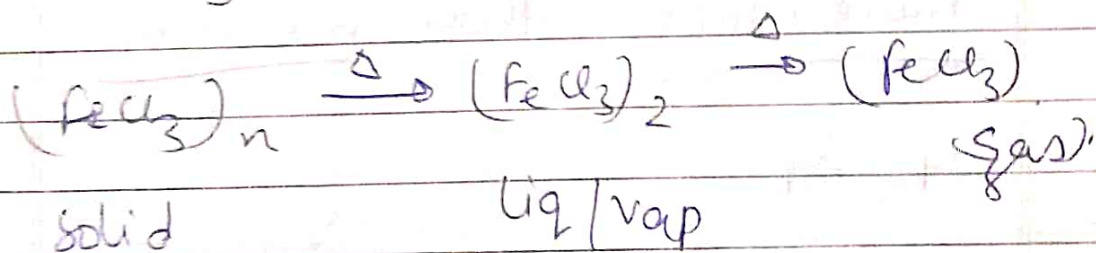 (FeCl3)n —Δ→ (FeCl3)2 —Δ→ (FeCl3)
gas).
Solid liq/vap